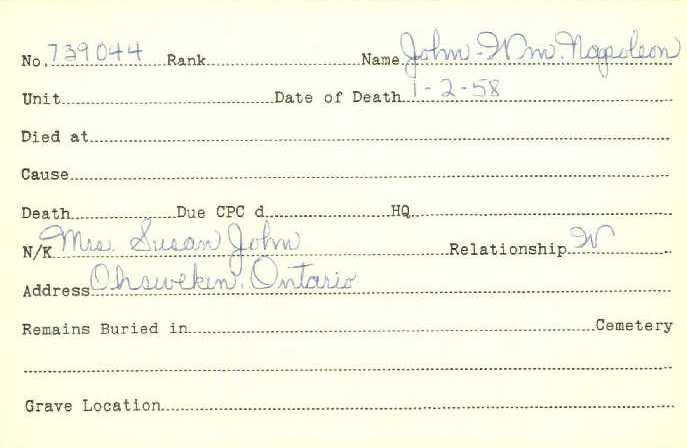 No. 739044 Rank Name John - Wm. Napoleon
Unit Date of Death 1-2-58
Died at
Cause
Death Due CPC d HQ
N/K Mrs. Susan John Relationship W
Address Ohsweken, Ontario
Remains Buried in Cemetery
Grave Location